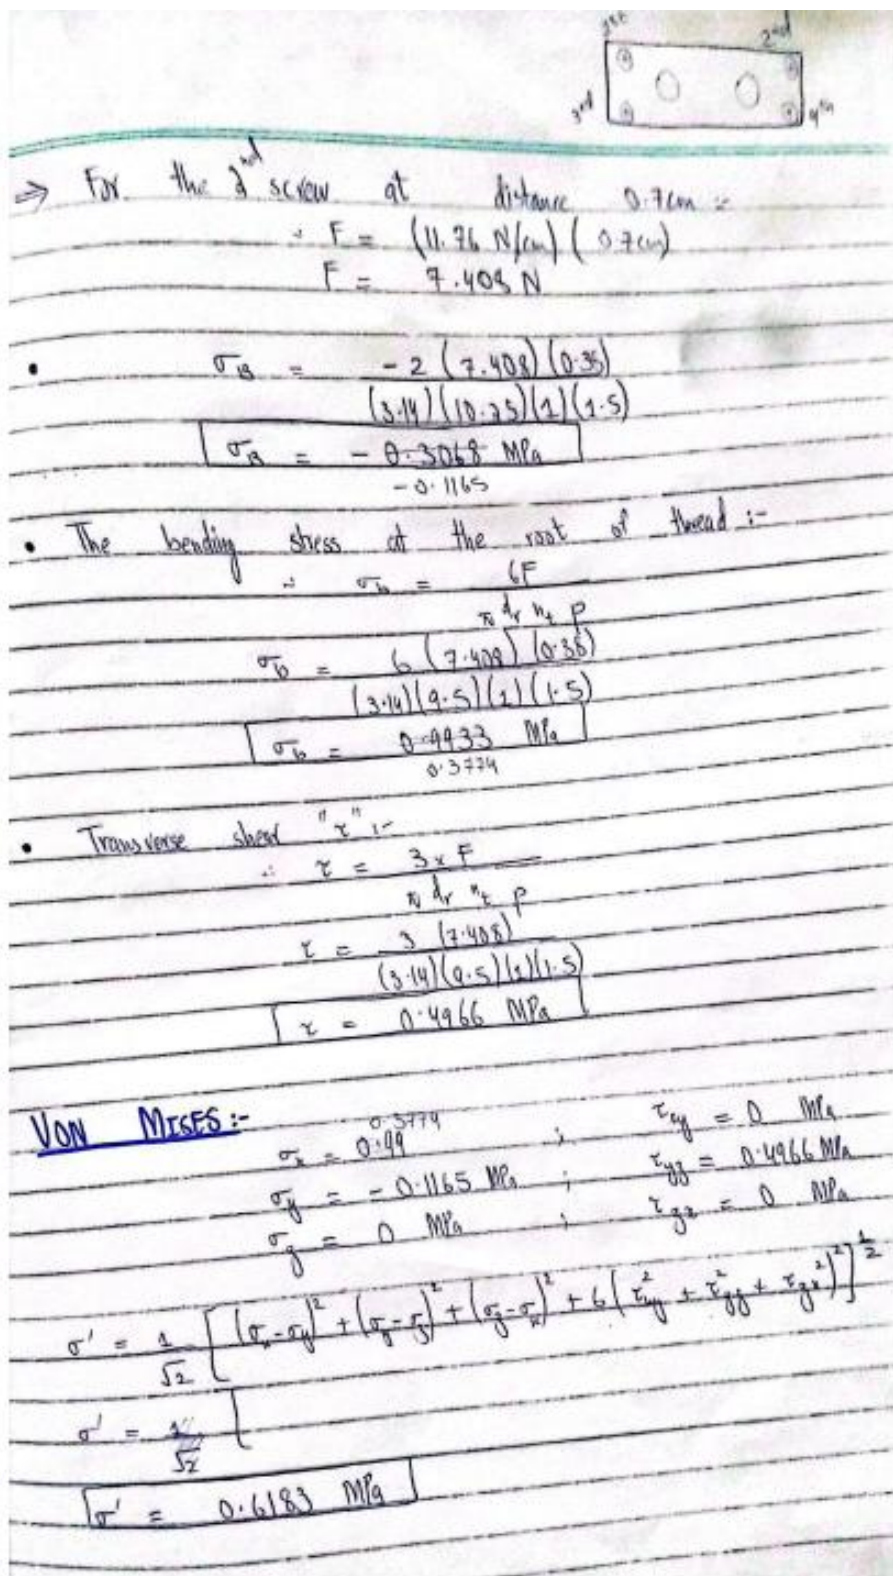 1st
2nd
3rd
4th
⇒ For the 2nd screw at distance 0.7cm :-
∴ F = (11.76 N/cm) (0.7cm)
F = 7.408 N
• σB = -2 (7.408) (0.38) / (3.14) (10.25) (1) (1.5)
σB = - 0.3068 MPa
- 0.1165
• The bending stress at the root of thread :-
∴ σb = 6F / π dr nt p
σb = 6 (7.408) (0.38) / (3.14) (9.5) (1) (1.5)
σb = 0.9933 MPa
0.3774
• Transverse shear "τ" :-
∴ τ = 3 x F / π dr nt p
τ = 3 (7.408) / (3.14) (9.5) (1) (1.5)
τ = 0.4966 MPa
VON MISES :-
0.3774
σx = 0.99 ; τxy = 0 MPa
σy = - 0.1165 MPa ; τyz = 0.4966 MPa
σz = 0 MPa ; τzx = 0 MPa
σ' = 1/√2 [ (σx - σy)² + (σy - σz)² + (σz - σx)² + 6 (τ²xy + τ²yz + τzx²)² ]^1/2
σ' = 1/√2 [
σ' = 0.6183 MPa